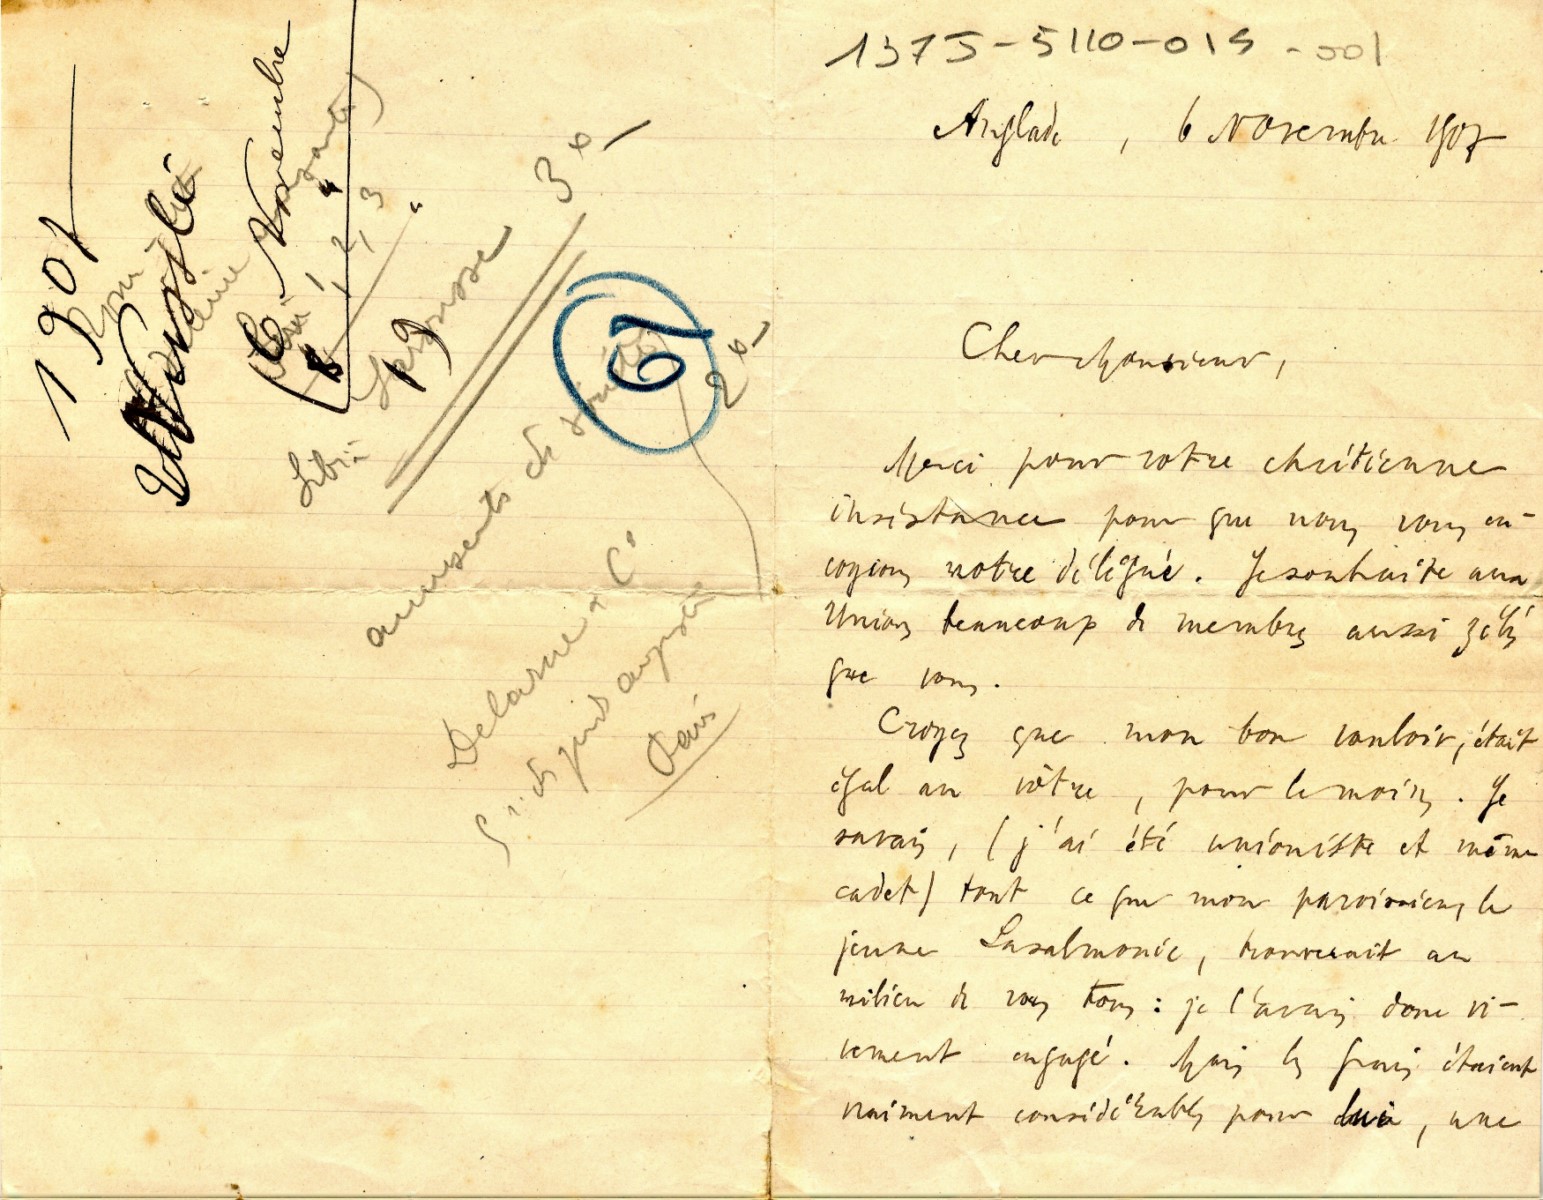 1907
Novembre
1, 2, 3
Larousse 3 x
67
amusements de société 2 x
Delarue & Cie
5 r. des grands augustins
Paris
1375-5110-015-001
Anglade, 6 Novembre 1907
Cher Monsieur,
Merci pour votre chrétienne
insistance pour que nous vous en-
voyions notre délégué. Je souhaite aux
Unions beaucoup de membres aussi zélés
que vous.
Croyez que mon bon vouloir, était
égal au vôtre, pour le moins. Je
savais, (j'ai été unioniste et même
cadet) tout ce que mon paroissien, le
jeune Lasalmonie, trouverait au
milieu de vous tous : je l'avais donc vi-
vement engagé. Mais les frais étaient
vraiment considérables pour lui, une